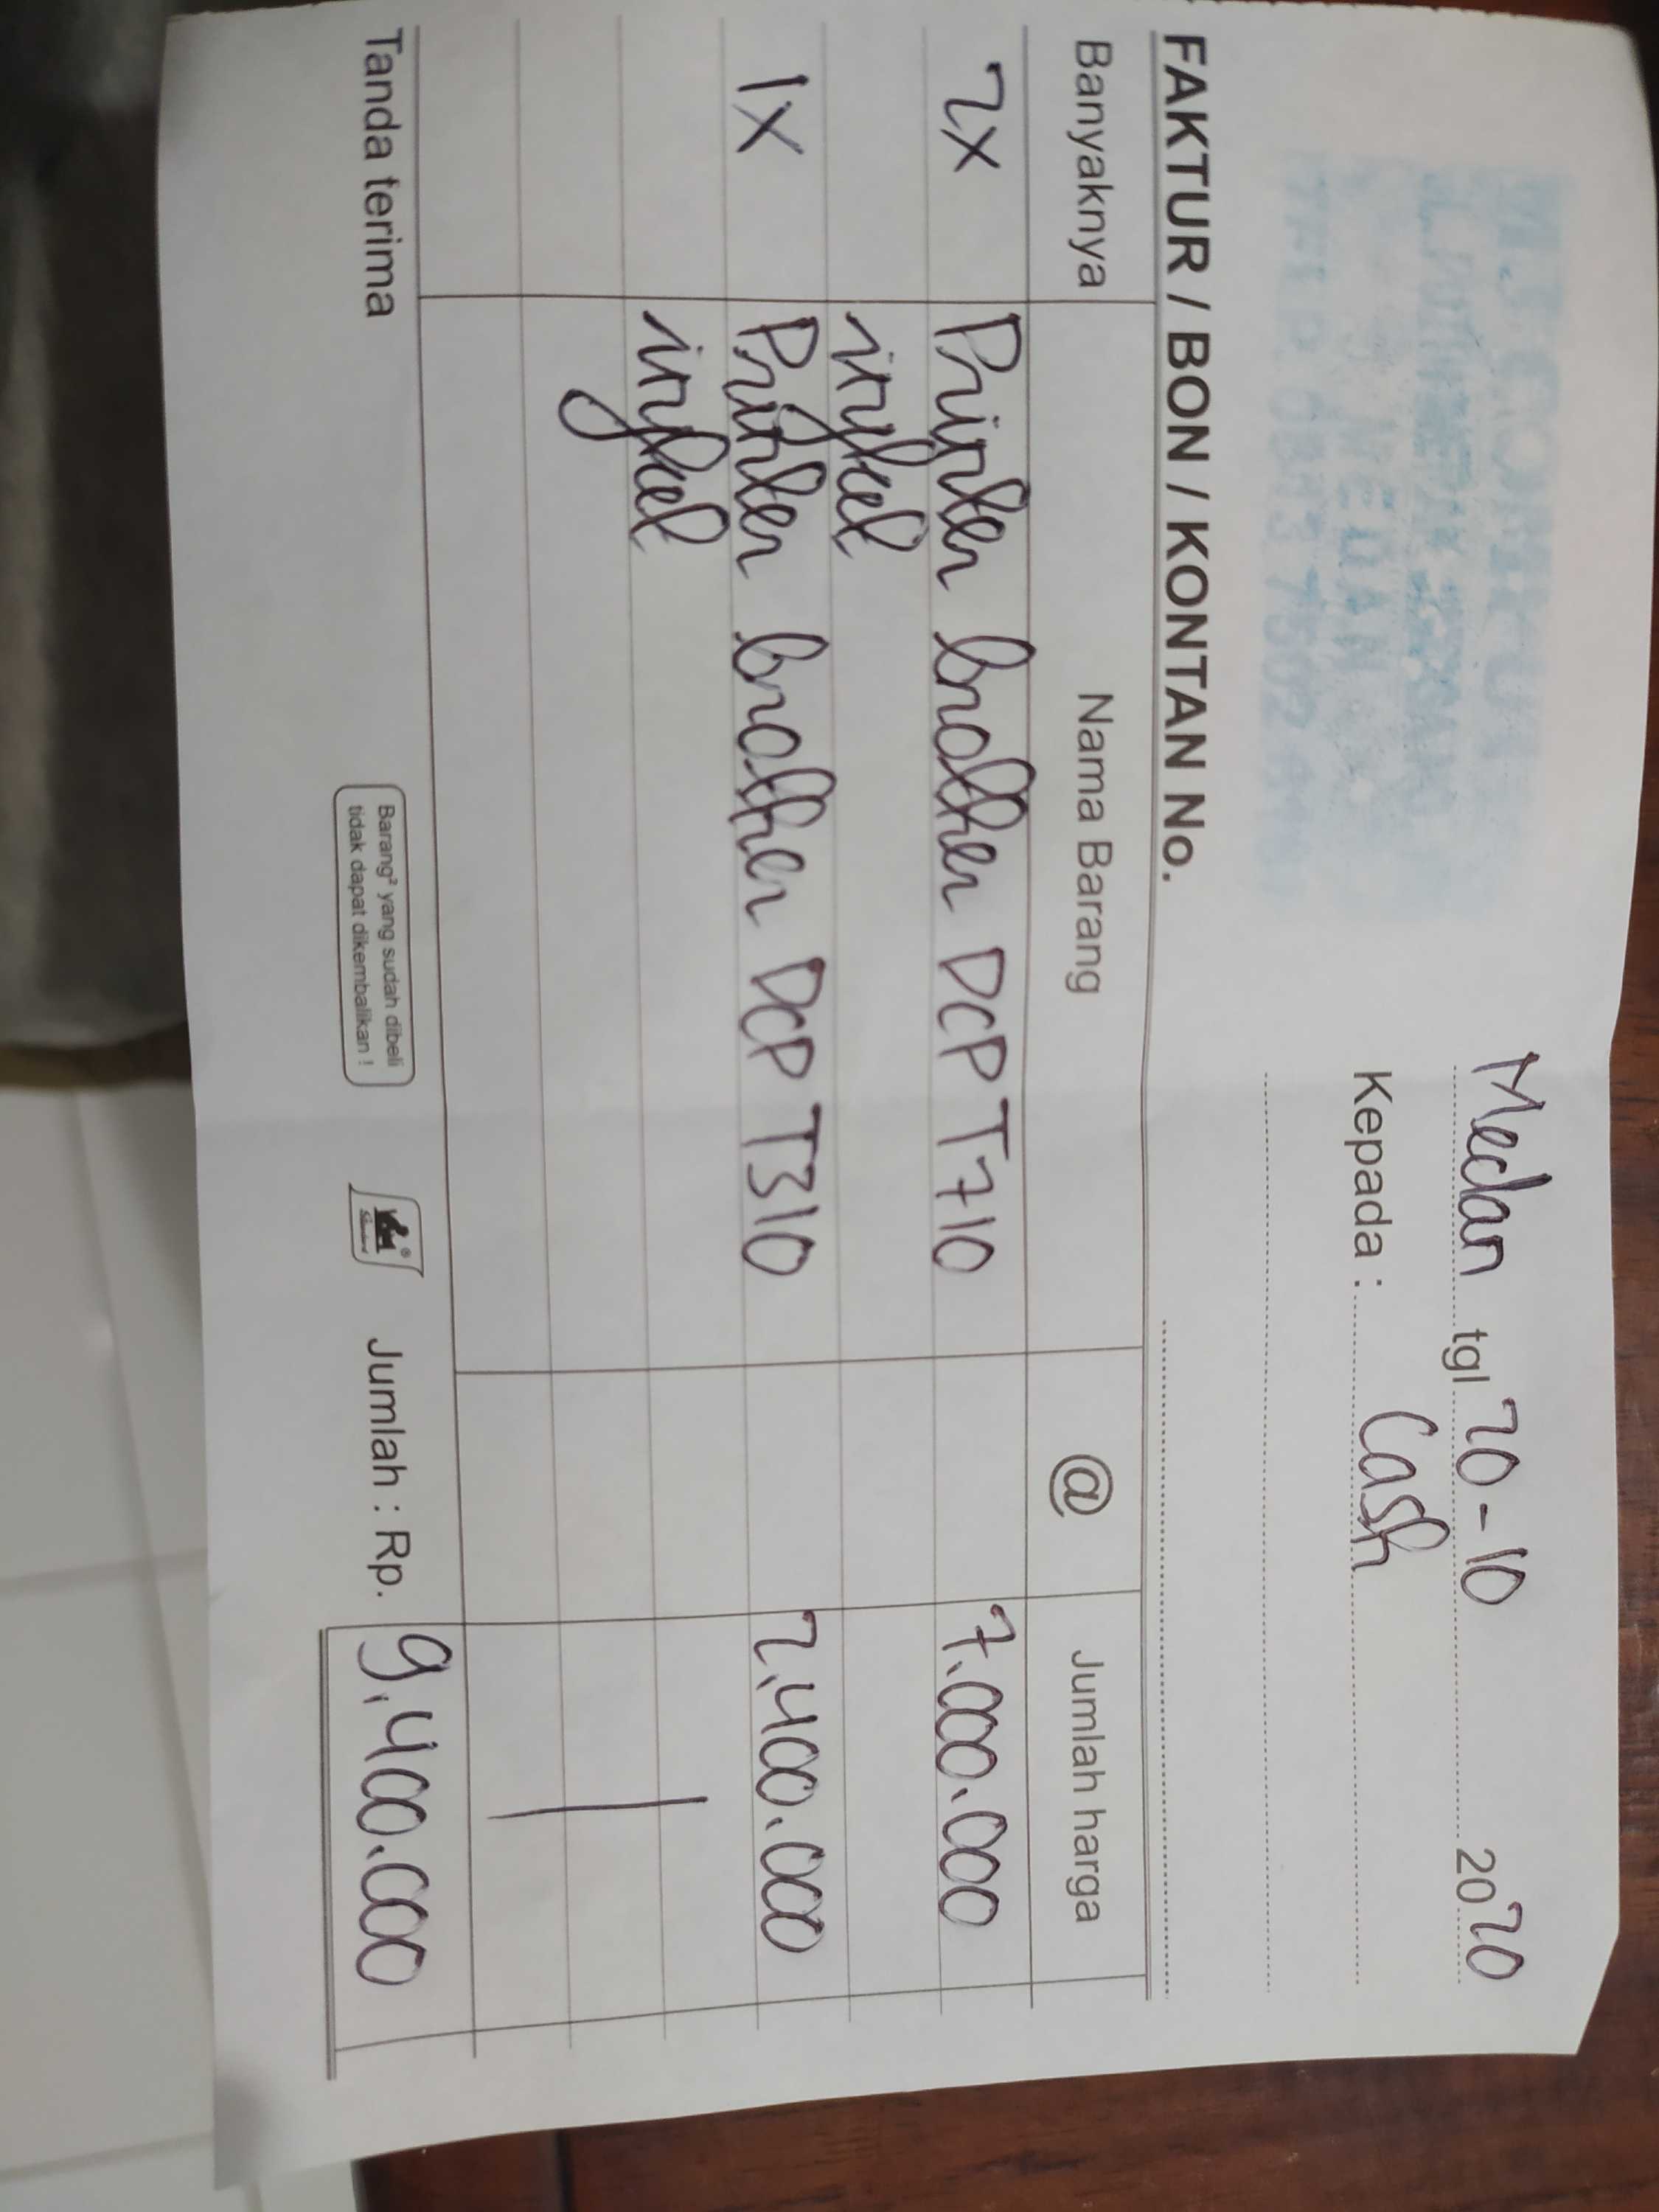 Medan tgl 20-10 2020
Kepada : Cash
MEDAN
FAKTUR / BON / KONTAN No.
Banyaknya Nama Barang @ Jumlah harga
2x Printer brother DCP T710 7.000.000
inkjet
1x Printer brother DCP T310 2.400.000
inkjet
Tanda terima
Barang² yang sudah dibeli
tidak dapat dikembalikan !
Jumlah : Rp. 9.400.000